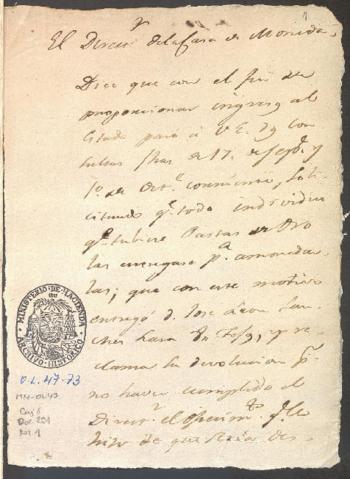 1
El Direcr. de la Casa de Moneda
Dice que con el fin de
proporcionar ingreso al
Estado pasó á V.E. dos con
sultas fhas de 17. de Sepe. y
1º. de Oct.e corriente, soli
citando q.e todo individuo
q.e tubiere Pastas de Oro
las entregase p.a amoneda
las; que con este motivo
entregó D. Jose
y re
clama la devolucion p.r
no haver cumplido el
Direcr. el
hizo de que sería des
MINISTERIO DE HACIENDA
ARCHIVO HISTORICO
O.L. 47-73
MN-0443
Caj 6
Doc 291
Fol 1